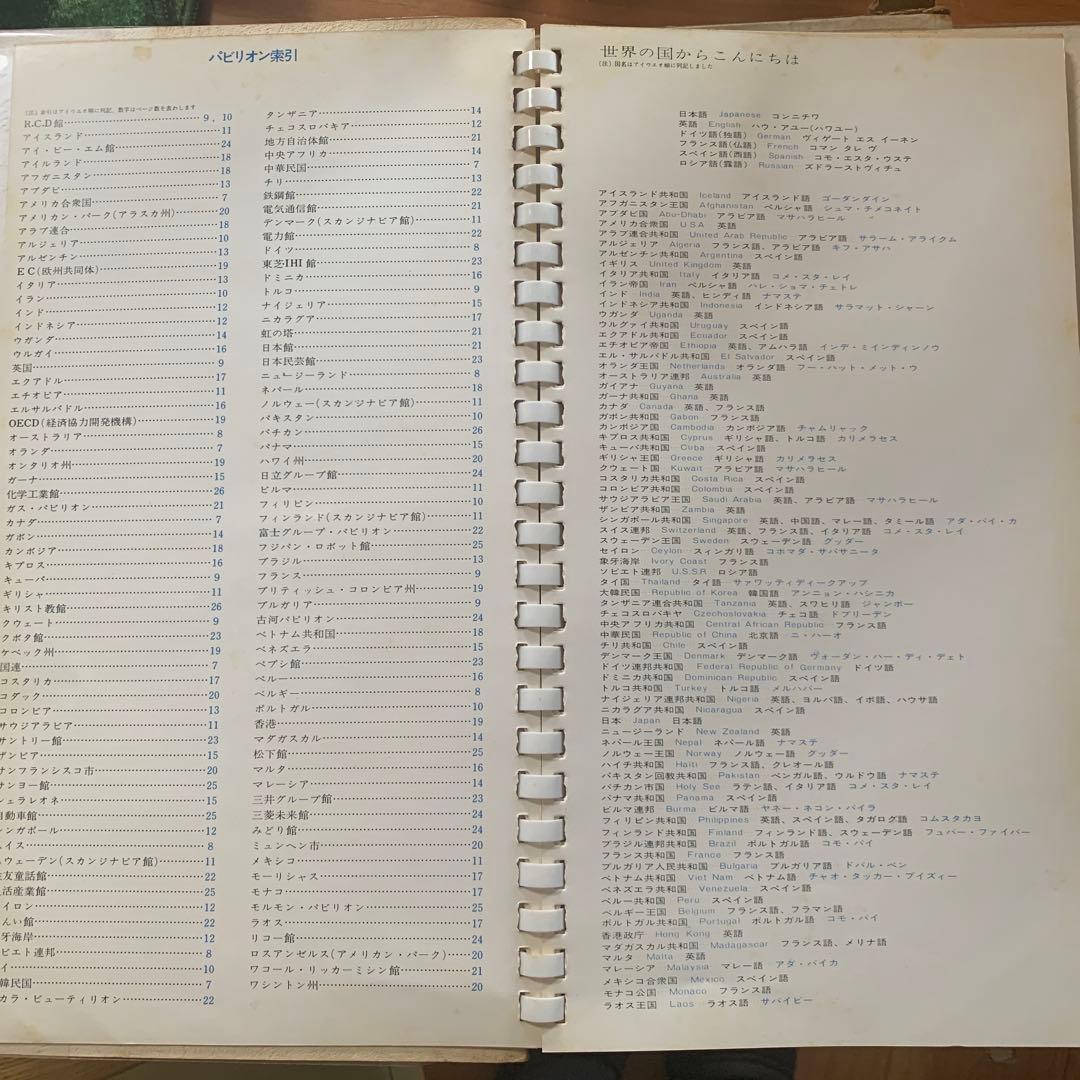 パビリオン索引
〔注〕索引はアイウエオ順に列記、数字はページ数を表わします
R.C.D館 9, 10
アイスランド 11
アイ・ビー・エム館 24
アイルランド 18
アフガニスタン 18
アブダビ 13
アメリカ合衆国 7
アメリカン・パーク(アラスカ州) 20
アラブ連合 18
アルジェリア 10
アルゼンチン 13
EC(欧州共同体) 19
イタリア 13
イラン 10
インド 12
インドネシア 12
ウガンダ 14
ウルガイ 16
英国 9
エクアドル 17
エチオピア 11
エルサルバドル 16
OECD(経済協力開発機構) 19
オーストラリア 8
オランダ 7
オンタリオ州 19
ガーナ 15
化学工業館 26
ガス・パビリオン 21
カナダ 7
ガボン 14
カンボジア 18
キプロス 16
キューバ 9
ギリシャ 11
キリスト教館 26
クウェート 9
クボタ館 23
ケベック州 19
国連 7
コスタリカ 17
コダック 20
コロンビア 13
サウジアラビア 11
サントリー館 23
ザンビア 15
サンフランシスコ市 20
サンヨー館 25
シェラレオネ 15
自動車館 25
シンガポール 12
スイス 8
スウェーデン(スカンジナビア館) 11
住友童話館 22
生活産業館 25
セイロン 12
せんい館 22
象牙海岸 12
ソビエト連邦 8
タイ 10
大韓民国 7
タカラ・ビューティリオン 22
タンザニア 14
チェコスロバキア 12
地方自治体館 21
中央アフリカ 14
中華民国 7
チリ 13
鉄鋼館 22
電気通信館 21
デンマーク(スカンジナビア館) 11
電力館 22
ドイツ 8
東芝IHI館 23
ドミニカ 16
トルコ 9
ナイジェリア 15
ニカラグア 17
虹の塔 21
日本館 21
日本民芸館 23
ニュージーランド 8
ネパール 18
ノルウェー(スカンジナビア館) 11
パキスタン 10
バチカン 26
パナマ 15
ハワイ州 20
日立グループ館 24
ビルマ 11
フィリピン 10
フィンランド(スカンジナビア館) 11
富士グループ・パビリオン 22
フジパン・ロボット館 25
ブラジル 13
フランス 9
ブリティッシュ・コロンビア州 19
ブルガリア 9
古河パビリオン 24
ベトナム共和国 18
ベネズエラ 15
ペプシ館 23
ペルー 16
ベルギー 8
ポルトガル 10
香港 19
マダガスカル 14
松下館 25
マルタ 16
マレーシア 14
三井グループ館 23
三菱未来館 24
みどり館 24
ミュンヘン市 20
メキシコ 11
モーリシャス 17
モナコ 17
モルモン・パビリオン 25
ラオス 17
リコー館 24
ロスアンゼルス(アメリカン・パーク) 20
ワコール・リッカーミシン館 21
ワシントン州 20
世界の国からこんにちは
〔注〕国名はアイウエオ順に列記しました
日本語 Japanese コンニチワ
英語 English ハウ・アユー(ハワユー)
ドイツ語(独語) German ヴィゲート エス イーネン
フランス語(仏語) French コマン タレ ヴ
スペイン語(西語) Spanish コモ・エスタ・ウステ
ロシア語(露語) Russian ズドラーストヴィチュ
アイスランド共和国 Iceland アイスランド語 ゴーダンダイン
アフガニスタン王国 Afghanistan ペルシャ語 シュマ・チメコネイト
アブダビ国 Abu-Dhabi アラビア語 マサハラヒール
アメリカ合衆国 USA 英語
アラブ連合共和国 United Arab Republic アラビア語 サラーム・アライクム
アルジェリア Algeria フランス語、アラビア語 キフ・アサハ
アルゼンチン共和国 Argentina スペイン語
イギリス United Kingdom 英語
イタリア共和国 Italy イタリア語 コメ・スタ・レイ
イラン帝国 Iran ペルシャ語 ハレ・ショマ・チェトレ
インド India 英語、ヒンディ語 ナマステ
インドネシア共和国 Indonesia インドネシア語 サラマット・シャーン
ウガンダ Uganda 英語
ウルグァイ共和国 Uruguay スペイン語
エクアドル共和国 Ecuador スペイン語
エチオピア帝国 Ethiopia 英語、アムハラ語 インデ・ミインディンノウ
エル・サルバドル共和国 El Salvador スペイン語
オランダ王国 Netherlands オランダ語 フー・ハット・メット・ウ
オーストラリア連邦 Australia 英語
ガイアナ Guyana 英語
ガーナ共和国 Ghana 英語
カナダ Canada 英語、フランス語
ガボン共和国 Gabon フランス語
カンボジア国 Cambodia カンボジア語 チャムリャック
キプロス共和国 Cyprus ギリシャ語、トルコ語 カリメラセス
キューバ共和国 Cuba スペイン語
ギリシャ王国 Greece ギリシャ語 カリメラセス
クウェート国 Kuwait アラビア語 マサハラヒール
コスタリカ共和国 Costa Rica スペイン語
コロンビア共和国 Colombia スペイン語
サウジアラビア王国 Saudi Arabia 英語、アラビア語 マサハラヒール
ザンビア共和国 Zambia 英語
シンガポール共和国 Singapore 英語、中国語、マレー語、タミール語 アダ・バイ・カ
スイス連邦 Switzerland 英語、フランス語、イタリア語 コメ・スタ・レイ
スウェーデン王国 Sweden スウェーデン語 グッダー
セイロン Ceylon スィンガリ語 コホマダ・サバサニータ
象牙海岸 Ivory Coast フランス語
ソビエト連邦 U.S.S.R ロシア語
タイ国 Thailand タイ語 サァワッティディークアップ
大韓民国 Republic of Korea 韓国語 アンニョン・ハシニカ
タンザニア連合共和国 Tanzania 英語、スワヒリ語 ジャンボー
チェコスロバキヤ Czechoslovakia チェコ語 ドブリーデン
中央アフリカ共和国 Central African Republic フランス語
中華民国 Republic of China 北京語 ニ・ハーオ
チリ共和国 Chile スペイン語
デンマーク王国 Denmark デンマーク語 ヴォーダン・ハー・ディ・デェト
ドイツ連邦共和国 Federal Republic of Germany ドイツ語
ドミニカ共和国 Dominican Republic スペイン語
トルコ共和国 Turkey トルコ語 メルハバー
ナイジェリア連邦共和国 Nigeria 英語、ヨルバ語、イボ語、ハウサ語
ニカラグア共和国 Nicaragua スペイン語
日本 Japan 日本語
ニュージーランド New Zealand 英語
ネパール王国 Nepal ネパール語 ナマステ
ノルウェー王国 Norway ノルウェー語 グッダー
ハイチ共和国 Haiti フランス語、クレオール語
パキスタン回教共和国 Pakistan ベンガル語、ウルドウ語 ナマステ
バチカン市国 Holy See ラテン語、イタリア語 コメ・スタ・レイ
パナマ共和国 Panama スペイン語
ビルマ連邦 Burma ビルマ語 ヤネー・ネコン・バイラ
フィリピン共和国 Philippines 英語、スペイン語、タガログ語 コムスタカヨ
フィンランド共和国 Finland フィンランド語、スウェーデン語 フュバー・ファイバー
ブラジル連邦共和国 Brazil ポルトガル語 コモ・バイ
フランス共和国 France フランス語
ブルガリア人民共和国 Bulgaria ブルガリア語 ドバル・ベン
ベトナム共和国 Viet Nam ベトナム語 チャオ・タッカー・ブイズィー
ベネズエラ共和国 Venezuela スペイン語
ペルー共和国 Peru スペイン語
ベルギー王国 Belgium フランス語、フラマン語
ポルトガル共和国 Portugal ポルトガル語 コモ・バイ
香港政庁 Hong Kong 英語
マダガスカル共和国 Madagascar フランス語、メリナ語
マルタ Malta 英語
マレーシア Malaysia マレー語 アダ・バイカ
メキシコ合衆国 Mexico スペイン語
モナコ公国 Monaco フランス語
ラオス王国 Laos ラオス語 サバイビー